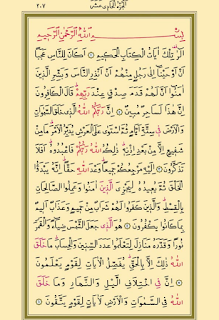 ٢٠٧ الجزء الحادي عشر
بِسْمِ اللَّهِ الرَّحْمَنِ الرَّحِيمِ
الٓر تِلْكَ آيَاتُ الْكِتَابِ الْحَكِيمِ ۝ أَكَانَ لِلنَّاسِ عَجَبًا
أَنْ أَوْحَيْنَا إِلَى رَجُلٍ مِنْهُمْ أَنْ أَنْذِرِ النَّاسَ وَبَشِّرِ الَّذِينَ
آمَنُوا أَنَّ لَهُمْ قَدَمَ صِدْقٍ عِنْدَ رَبِّهِمْ قَالَ الْكَافِرُونَ
إِنَّ هَذَا لَسَاحِرٌ مُبِينٌ ۝ إِنَّ رَبَّكُمُ اللَّهُ الَّذِي خَلَقَ السَّمَوَاتِ
وَالْأَرْضَ فِي سِتَّةِ أَيَّامٍ ثُمَّ اسْتَوَى عَلَى الْعَرْشِ يُدَبِّرُ الْأَمْرَ مَا مِنْ
شَفِيعٍ إِلَّا مِنْ بَعْدِ إِذْنِهِ ذَلِكُمُ اللَّهُ رَبُّكُمْ فَاعْبُدُوهُ أَفَلَا
تَذَكَّرُونَ ۝ إِلَيْهِ مَرْجِعُكُمْ جَمِيعًا وَعْدَ اللَّهِ حَقًّا إِنَّهُ يَبْدَأُ
الْخَلْقَ ثُمَّ يُعِيدُهُ لِيَجْزِيَ الَّذِينَ آمَنُوا وَعَمِلُوا الصَّالِحَاتِ
بِالْقِسْطِ وَالَّذِينَ كَفَرُوا لَهُمْ شَرَابٌ مِنْ حَمِيمٍ وَعَذَابٌ أَلِيمٌ
بِمَا كَانُوا يَكْفُرُونَ ۝ هُوَ الَّذِي جَعَلَ الشَّمْسَ ضِيَاءً وَالْقَمَرَ
نُورًا وَقَدَّرَهُ مَنَازِلَ لِتَعْلَمُوا عَدَدَ السِّنِينَ وَالْحِسَابَ مَا خَلَقَ
اللَّهُ ذَلِكَ إِلَّا بِالْحَقِّ يُفَصِّلُ الْآيَاتِ لِقَوْمٍ يَعْلَمُونَ
۝ إِنَّ فِي اخْتِلَافِ اللَّيْلِ وَالنَّهَارِ وَمَا خَلَقَ
اللَّهُ فِي السَّمَوَاتِ وَالْأَرْضِ لَآيَاتٍ لِقَوْمٍ يَتَّقُونَ ۝